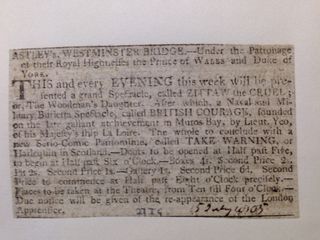 ASTLEY's, WESTMINSTER BRIDGE.—Under the Patronage
of their Royal Highnesses the Prince of WALES and Duke of
YORK.
THIS and every EVENING this week will be pre-
sented a grand Spectacle, called ZITTAW the CRUEL;
or, The Woodman's Daughter. After which, a Naval and Mi-
litary Burletta Spectacle, called BRITISH COURAGE, founded
on the late gallant achievement in Muros Bay, by Lieut. Yeo,
of his Majesty's ship La Loire. The whole to conclude with a
new Serio-Comic Pantomime, called TAKE WARNING, or
Harlequin in Scotland.—Doors to be opened at Half past Five,
to begin at Half past Six o'Clock.—Boxes 4s. Second Price 2s.
Pit 2s. Second Price 1s.—Gallery 1s. Second Price 6d. Second
Price to commence at Half past Eight o'Clock precisely.—
Places to be taken at the Theatre, from Ten till Four o'Clock.—
Due notice will be given of the re-appearance of the London
Apprentice.
July 1805